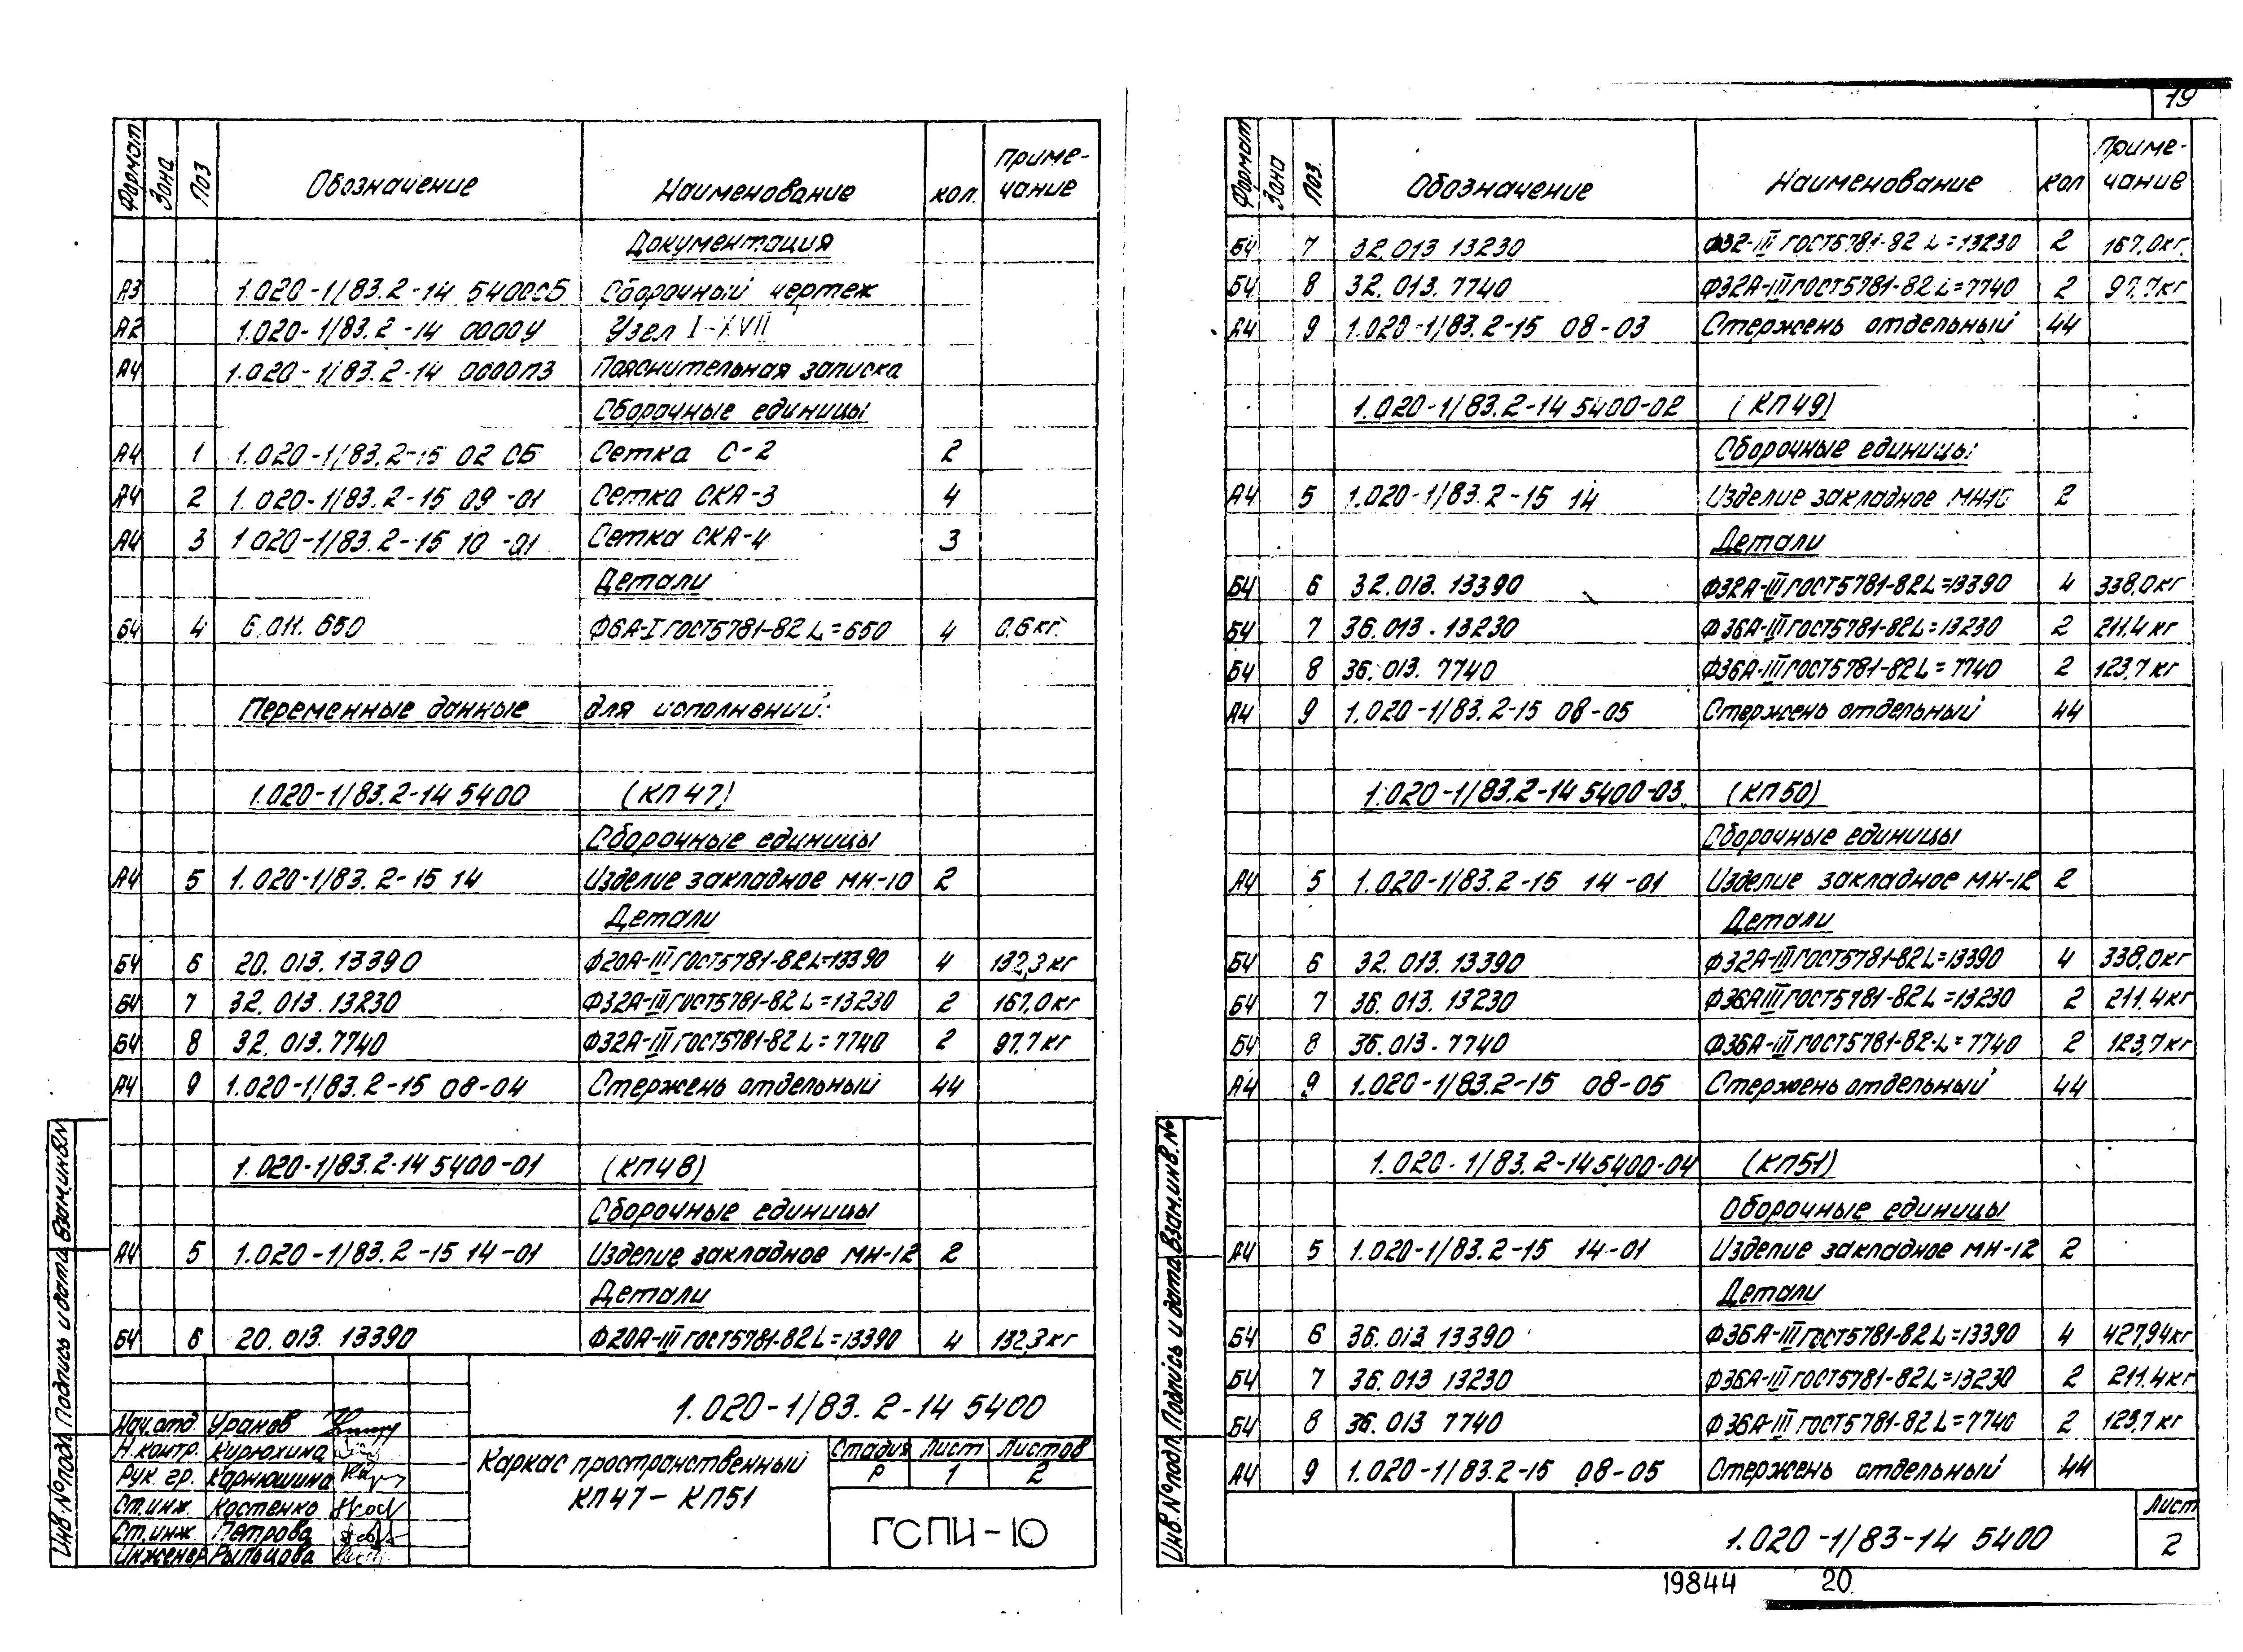 Формат Зона Поз Обозначение Наименование кол. Приме-
чание
Документация
А3 1.020-1/83.2-14 5400СБ Сборочный чертеж
А2 1.020-1/83.2-14 0000У Узел I-XVII
А4 1.020-1/83.2-14 0000ПЗ Пояснительная записка
Сборочные единицы
А4 1 1.020-1/83.2-15 02 СБ Сетка С-2 2
А4 2 1.020-1/83.2-15 09-01 Сетка СКА-3 4
А4 3 1.020-1/83.2-15 10-01 Сетка СКА-4 3
Детали
БЧ 4 6.011.650 Ф6А-I ГОСТ5781-82 L=650 4 0.6кг.
Переменные данные для исполнений:
1.020-1/83.2-14 5400 (КП47)
Сборочные единицы
А4 5 1.020-1/83.2-15 14 Изделие закладное МН-10 2
Детали
БЧ 6 20.013.13390 Ф20А-III ГОСТ5781-82L=13390 4 132,3кг
БЧ 7 32.013.13230 Ф32А-III ГОСТ5781-82 L=13230 2 167.0кг
БЧ 8 32.013.7740 Ф32А-III ГОСТ5781-82 L=7740 2 97.7кг
А4 9 1.020-1/83.2-15 08-04 Стержень отдельный 44
1.020-1/83.2-14 5400-01 (КП48)
Сборочные единицы
А4 5 1.020-1/83.2-15 14-01 Изделие закладное МН-12 2
Детали
БЧ 6 20.013.13390 Ф20А-III ГОСТ5781-82 L=13390 4 132,3кг
1.020-1/83.2-14 5400
Нач.отд. Уранов
Н.контр. Кирюхина
Рук. гр. Карнюшина
Ст.инж. Костенко
Ст.инж. Петрова
Инженер Рыльцова
Каркас пространственный
КП47-КП51
Стадия Лист Листов
Р 1 2
ГСПИ-10
Инв.№подл. Подпись и дата Взам.инв.№
19
Формат Зона Поз. Обозначение Наименование кол Приме-
чание
БЧ 7 32.013 13230 Ф32-III ГОСТ5781-82 L=13230 2 167,0кг.
БЧ 8 32.013.7740 Ф32А-III ГОСТ5781-82L=7740 2 97.7кг
А4 9 1.020-1/83.2-15 08-03 Стержень отдельный 44
1.020-1/83.2-14 5400-02 (КП49)
Сборочные единицы
А4 5 1.020-1/83.2-15 14 Изделие закладное МН10 2
Детали
БЧ 6 32.013.13390 Ф32А-III ГОСТ5781-82L=13390 4 338,0кг
БЧ 7 36.013.13230 Ф36А-III ГОСТ5781-82L=13230 2 211.4кг
БЧ 8 36.013.7740 Ф36А-III ГОСТ5781-82L=7740 2 123,7кг
А4 9 1.020-1/83.2-15 08-05 Стержень отдельный 44
1.020-1/83.2-14 5400-03 (КП50)
Сборочные единицы
А4 5 1.020-1/83.2-15 14-01 Изделие закладное МН-12 2
Детали
БЧ 6 32.013.13390 Ф32А-III ГОСТ5781-82L=13390 4 338,0кг
БЧ 7 36.013.13230 Ф36АIII ГОСТ5781-82 L=13230 2 211.4кг
БЧ 8 36.013.7740 Ф36А-III ГОСТ5781-82-L=7740 2 123,7кг
А4 9 1.020-1/83.2-15 08-05 Стержень отдельный 44
1.020-1/83.2-14 5400-04 (КП51)
Сборочные единицы
А4 5 1.020-1/83.2-15 14-01 Изделие закладное МН-12 2
Детали
БЧ 6 36.013 13390 Ф36А-III ГОСТ5781-82 L=13390 4 427,94кг
БЧ 7 36.013 13230 Ф36А-III ГОСТ5781-82L=13230 2 211.4кг
БЧ 8 36.013 7740 Ф36А-III ГОСТ5781-82L=7740 2 123,7кг
А4 9 1.020-1/83.2-15 08-05 Стержень отдельный 44
1.020-1/83-14 5400
Лист
2
Инв.№подл. Подпись и дата Взам.инв.№
19844 20